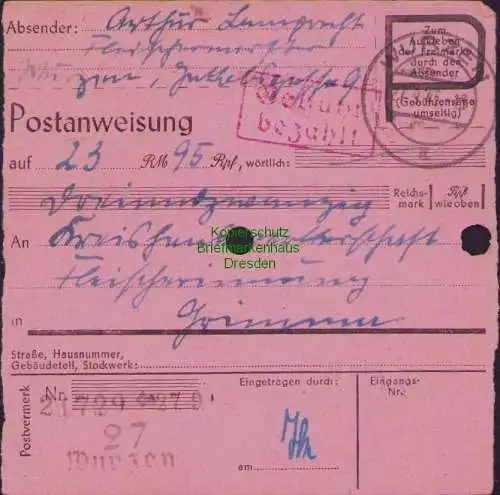 Absender: Arthur Lamprecht
Fleischermeister
Wurzen,
Zum
Aufkleben
der Freimarke
durch den
Absender
(Gebührensätze
umseitig)
Gebühr
bezahlt
Postanweisung
auf 23 RM 95 Rpf, wörtlich:
Dreiundzwanzig Reichs-mark Rpf wie oben
An Kreishandwerkerschaft
Fleischerinnung
in Grimma
Kopierschutz
Briefmarkenhaus
Dresden
Straße, Hausnummer,
Gebäudeteil, Stockwerk:
Postvermerk
Nr.
Eingetragen durch:
Eingangs-
Nr.
27
Wurzen
am